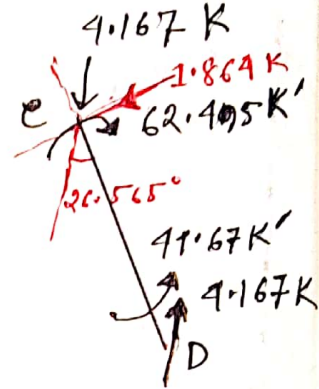 4.167 K
1.864 K
C
62.495K'
26.565°
41.67K'
4.167K
D